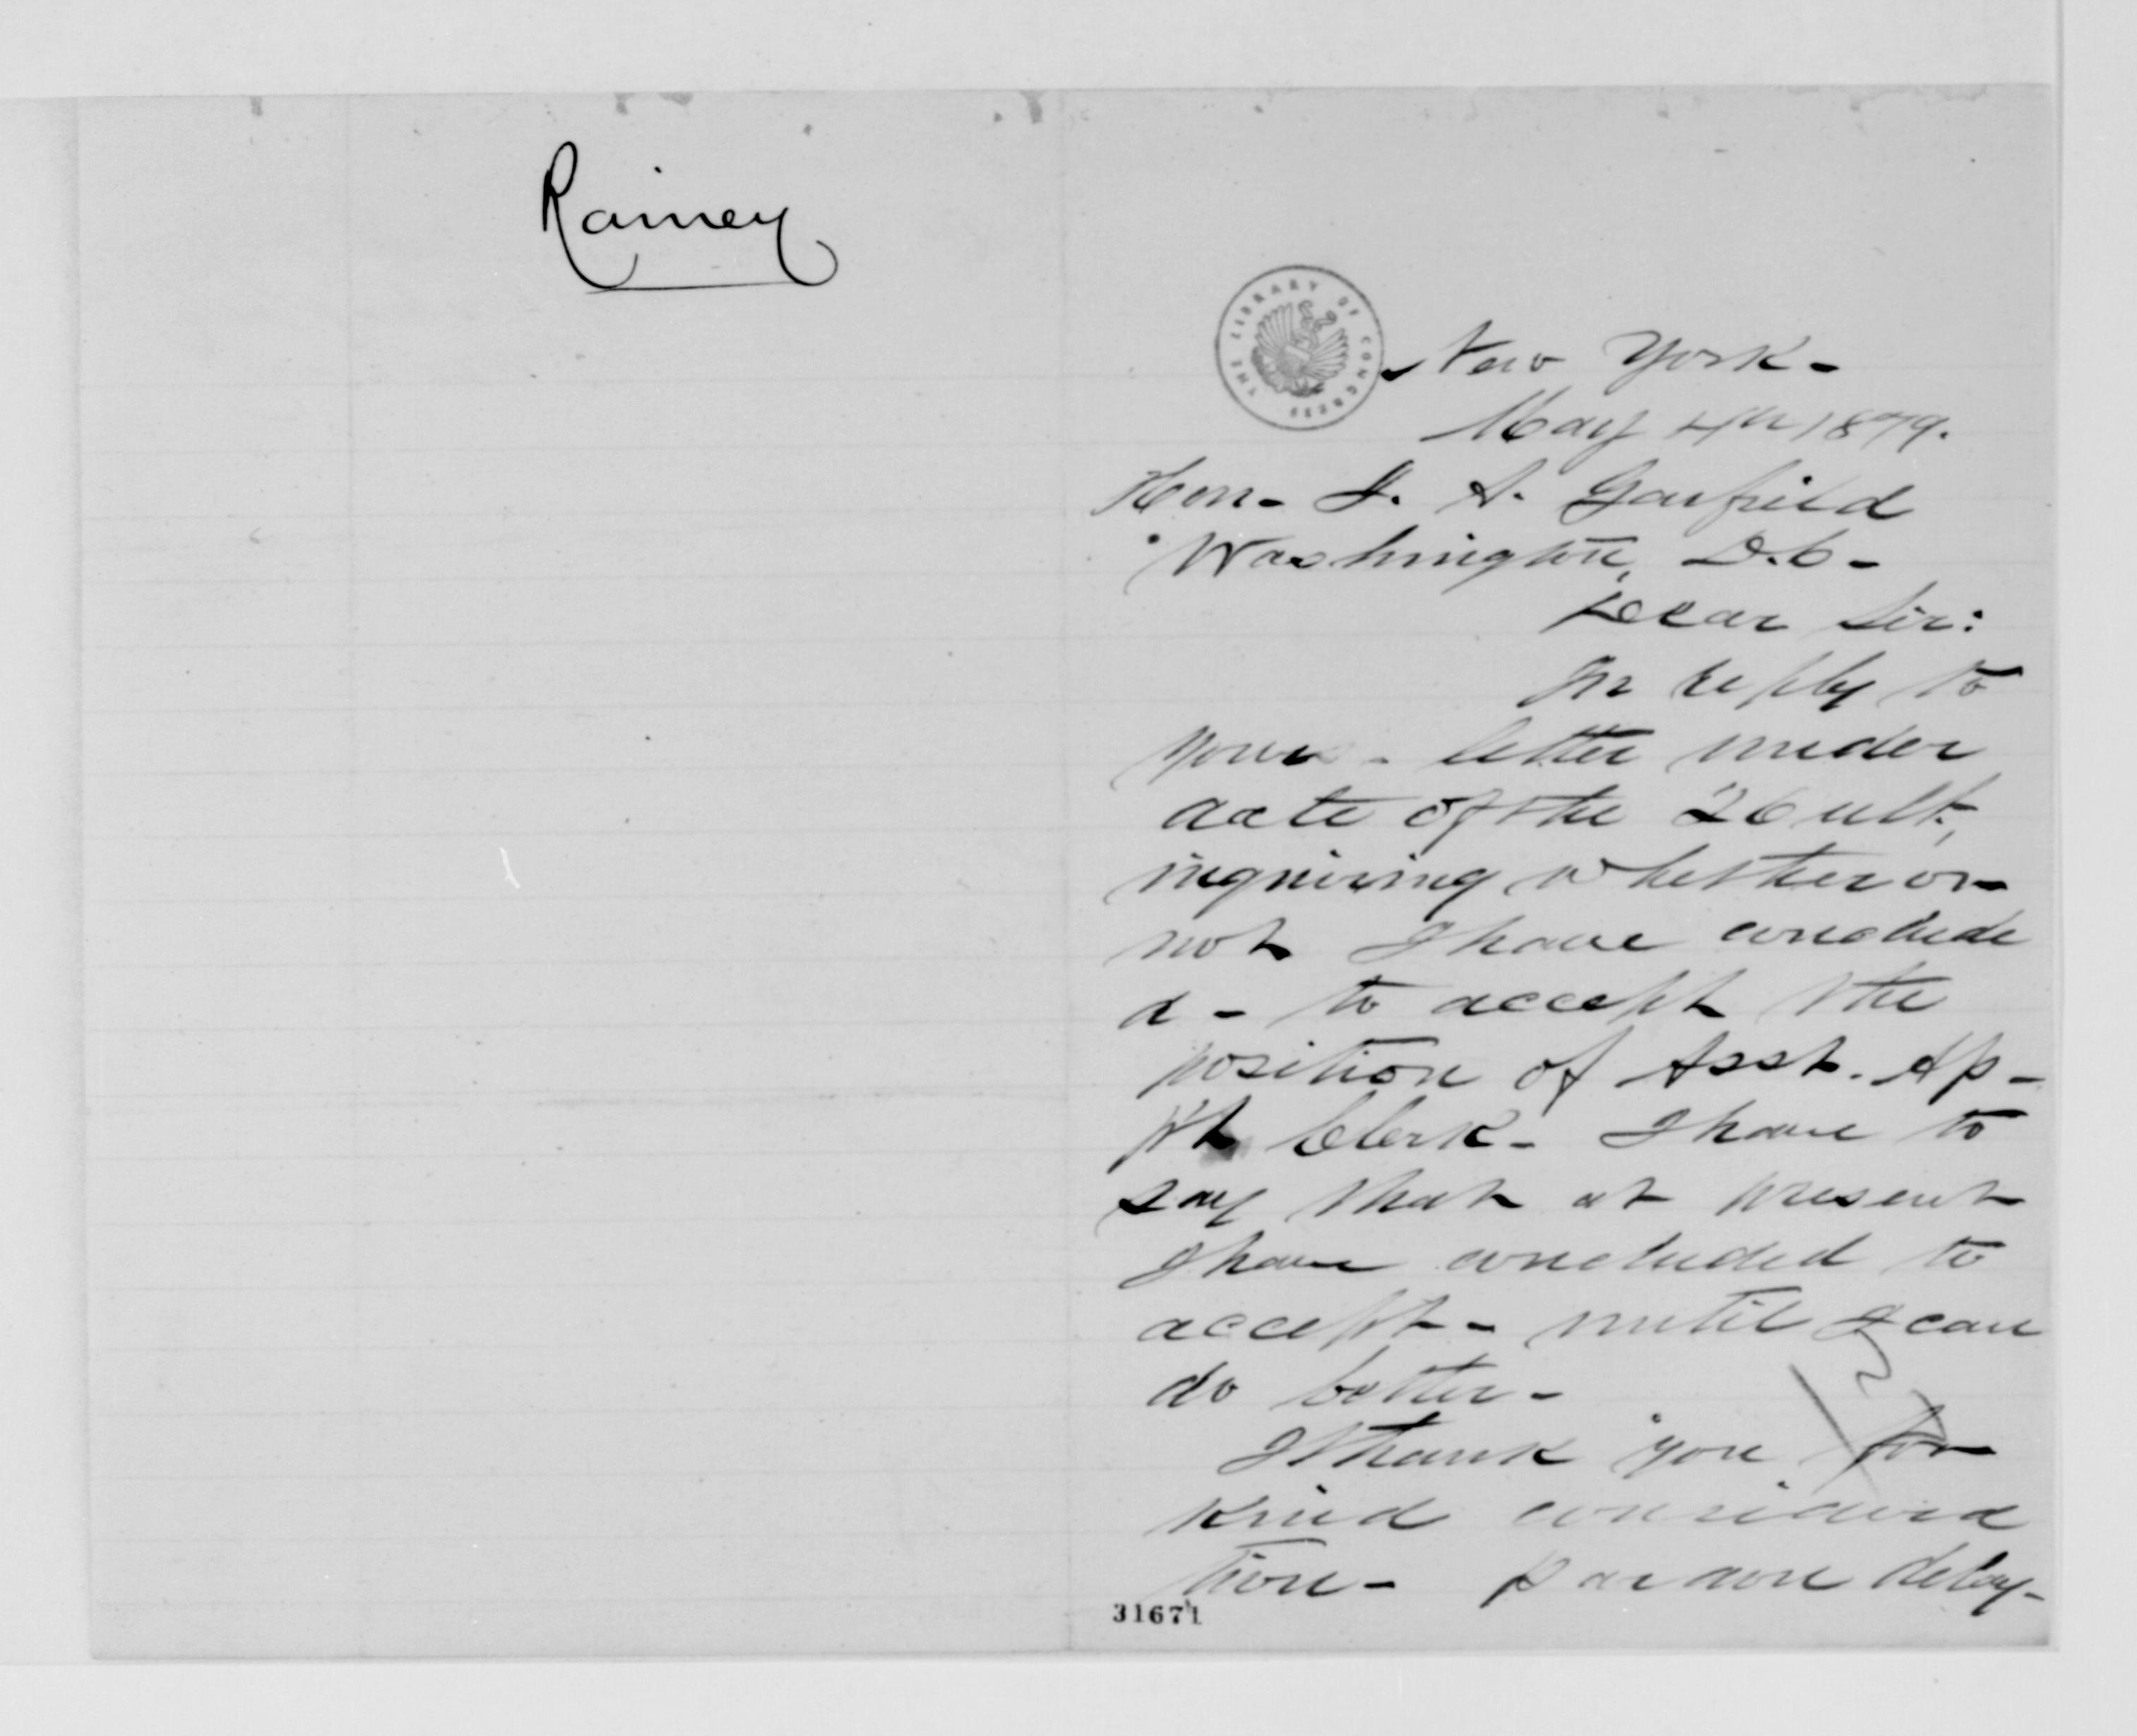 Rainey
THE LIBRARY OF CONGRESS
New York-
May 4th 1879.
Hon- J. A. Garfield
Washington, D.C-
Dear Sir:
In reply to
yours - letter under
date of the 26 ult,
inquiring whether or
not I have conclude
d - to accept the
position of Asst. Ap-
pt Clerk - I have to
say that at present
I have concluded to
accept - until I can
do better -
I thank you for
kind considera
tion - Pardon delay-
31671